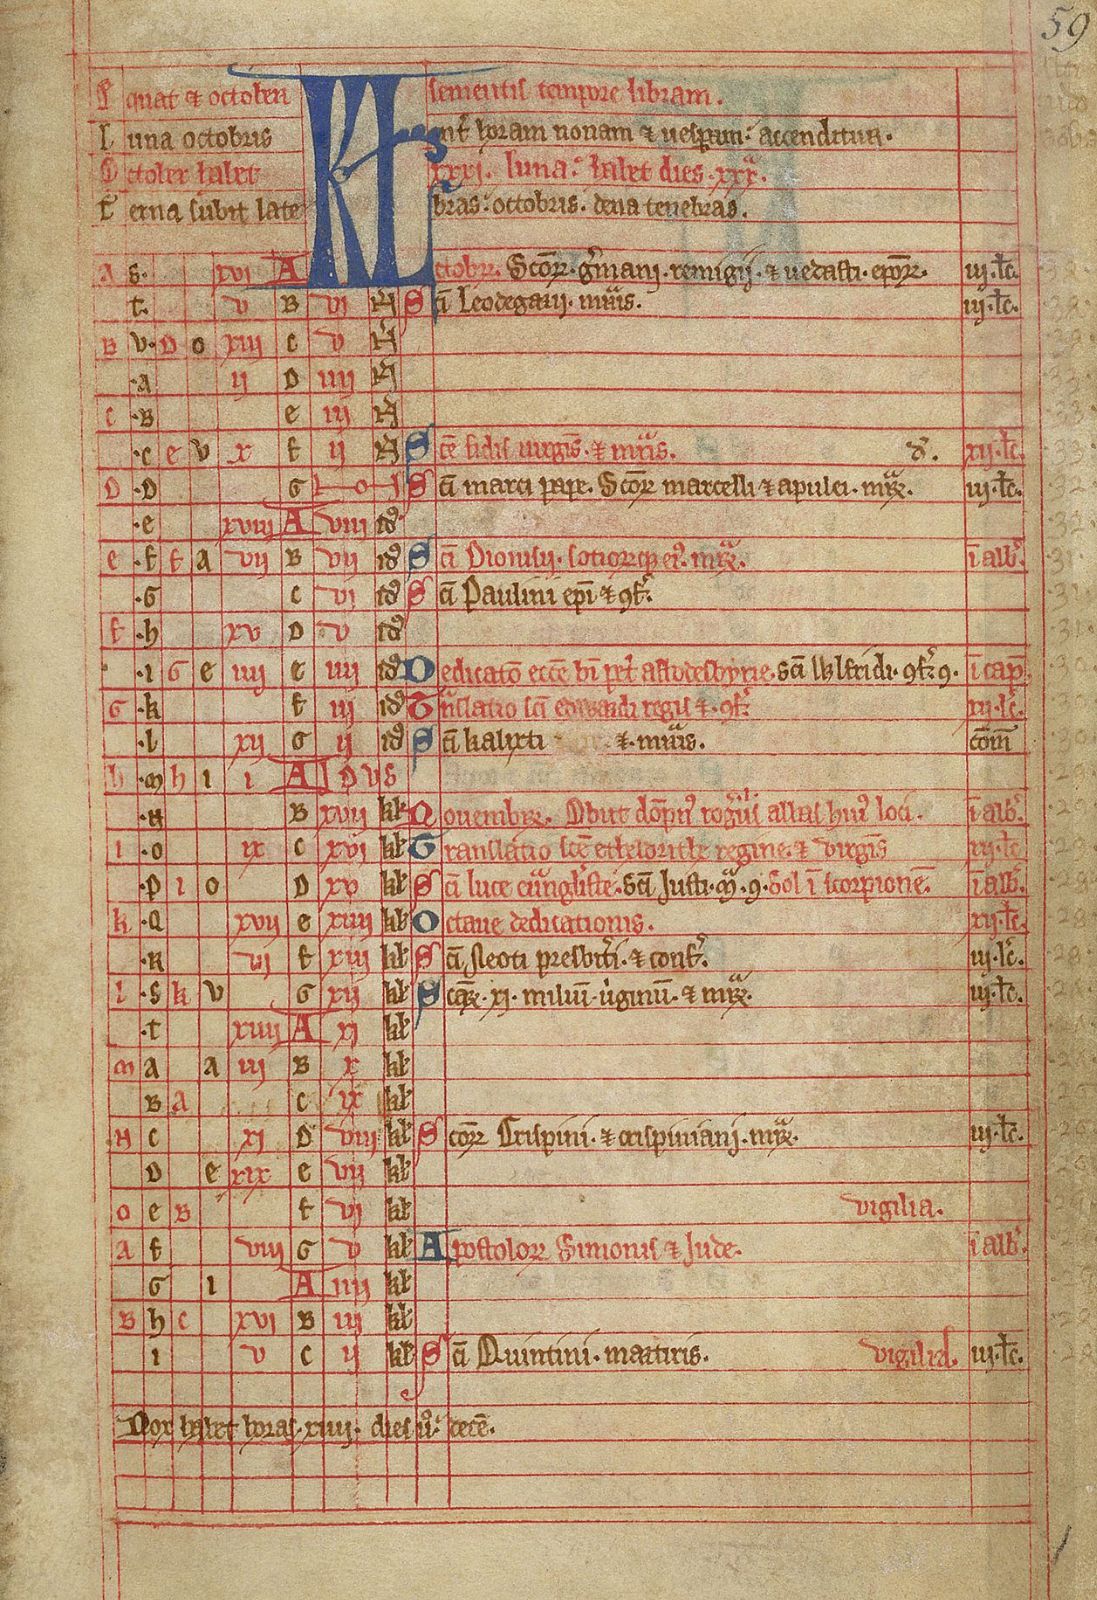 59
Equat et octoben KL sementis tempore libram.
Luna octobris ante horam nonam et uesperam accenditur.
October habet xxxi. luna. habet dies .xxx.
Eterna subit late bras. octobris. dena tenebras.
a s. xvi A Octobr. Scorꝝ. Germani. remigij. et uedasti. eporꝝ. iij. lc.
t. v B vi N Sci Leodegarij. mris. iij. lc.
B v. D o xiii c v N
.a ij D iiii N
c .B e iii N
.c e v x f ii N Sce fidis uirginis. et mris. d. xij. lc.
D .D G NO Sci marci pape. Scorꝝ marcelli et apulei. mrꝝ. iij. lc.
.e xviii A viii id
e .f f a vij B vij id Sci Dionisii. sociorꝝque eius. mrꝝ. i alb.
.G c vi id Sci Paulini epi et 9f.
f .h xv D v id
.i G e iiii e iiii id Dedicatio ecce bi petri de Sci Wlfridi. 9f. 9. i cap.
G .k f iii id Translatio sci edwardi regis et 9f. xij. lc.
.l xij G ij id Sci kalixti et mris. com
h .m h i i A IDVS
.n B xvij kl Nouembrꝝ. Obiit dopn rogerius abbas hui loci. i alb.
i .o ix c xvi kl Translatio sce etheldrithe regine. et virginis xij. lc
.p i o D xv kl Sci luce euangliste. Sci Justi. m. 9. Sol i scorpione. i alb.
k .Q xvij e xiiii kl Octaue dedicationis. xij. lc.
.R vi f xiii kl Sci Neoti presbiteri. et conf. iij. lc.
l .s k v G xij kl Scarꝝ. xi. milium. uirginum. et mrꝝ. iij. lc.
.t xiiii A xi kl
m a a iii B x kl
B a c ix kl
n c xi D viii kl Scorꝝ Crispini. et crispiniani. mrꝝ. iij. lc.
D e xix e vij kl
o e B f vi kl vigilia.
a f viii G v kl Apostolorꝝ Simonis et Iude. i alb.
G i A iiii kl
B h c xvi B iii kl
i v c ii kl Sci Quintini. martiris. vigilia. iij. lc.
Nox habet horas. xiiii. dies u. decem.